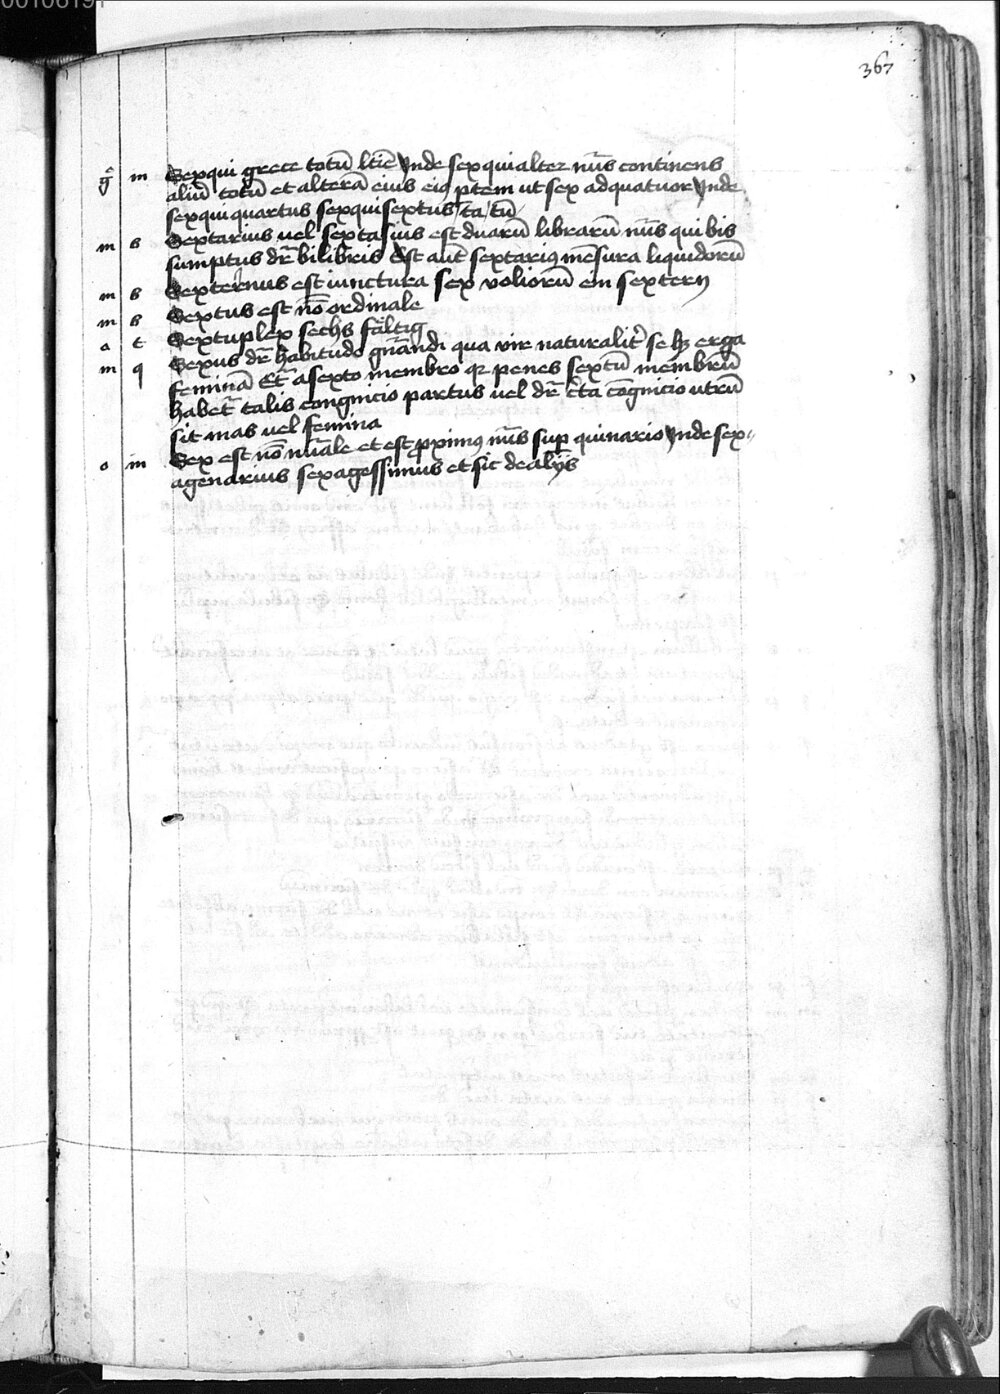 00106191
367
g̃ m Sexqui grece totū ltīe Inde sexquialter nūs continens
aliū totū et alterā eius eiq ptem ut sex ad quatuor Inde
sexqui quartus sexqui sextus ta tū
m s Sextarius uel sextasius est duarū librarū nūs qui bis
sumptus dr̄ bilibris Est aut̄ sextariꝯ mēsura liquidorū
m s Sexternus est iunctura sex voliorū ein sextern
m s Sextus est nōn ordinale
a t Sextuplex sechs fältig
m q Sexus dr̄ habitudo gn̄andi qua vir naturalit̄ se hꝫ erga
feminā Et̄ a sexto membro qꝛ penes sextū membrū
habet̄ talis congnicio partus uel dr̄ c̄ta cōgnicio utrū
sit mas uel femina
o in Sex est nōn nūale et est ꝓximꝯ nūs sup quinario Inde sex⸗
agenarius sexagessimus et sic de alijs